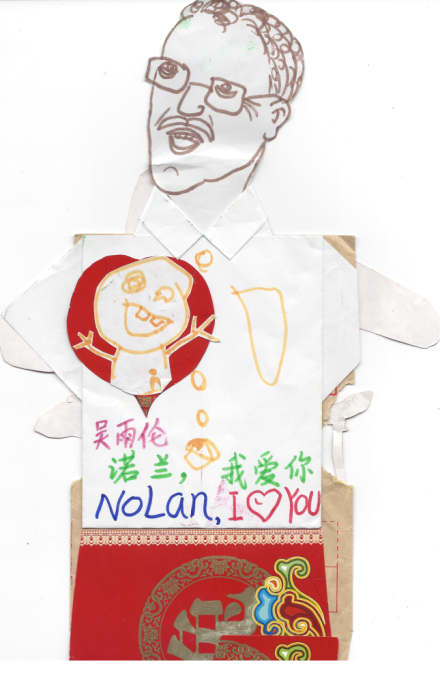 吴雨伦
诺兰，我爱你
NoLan, I ♡ YOU